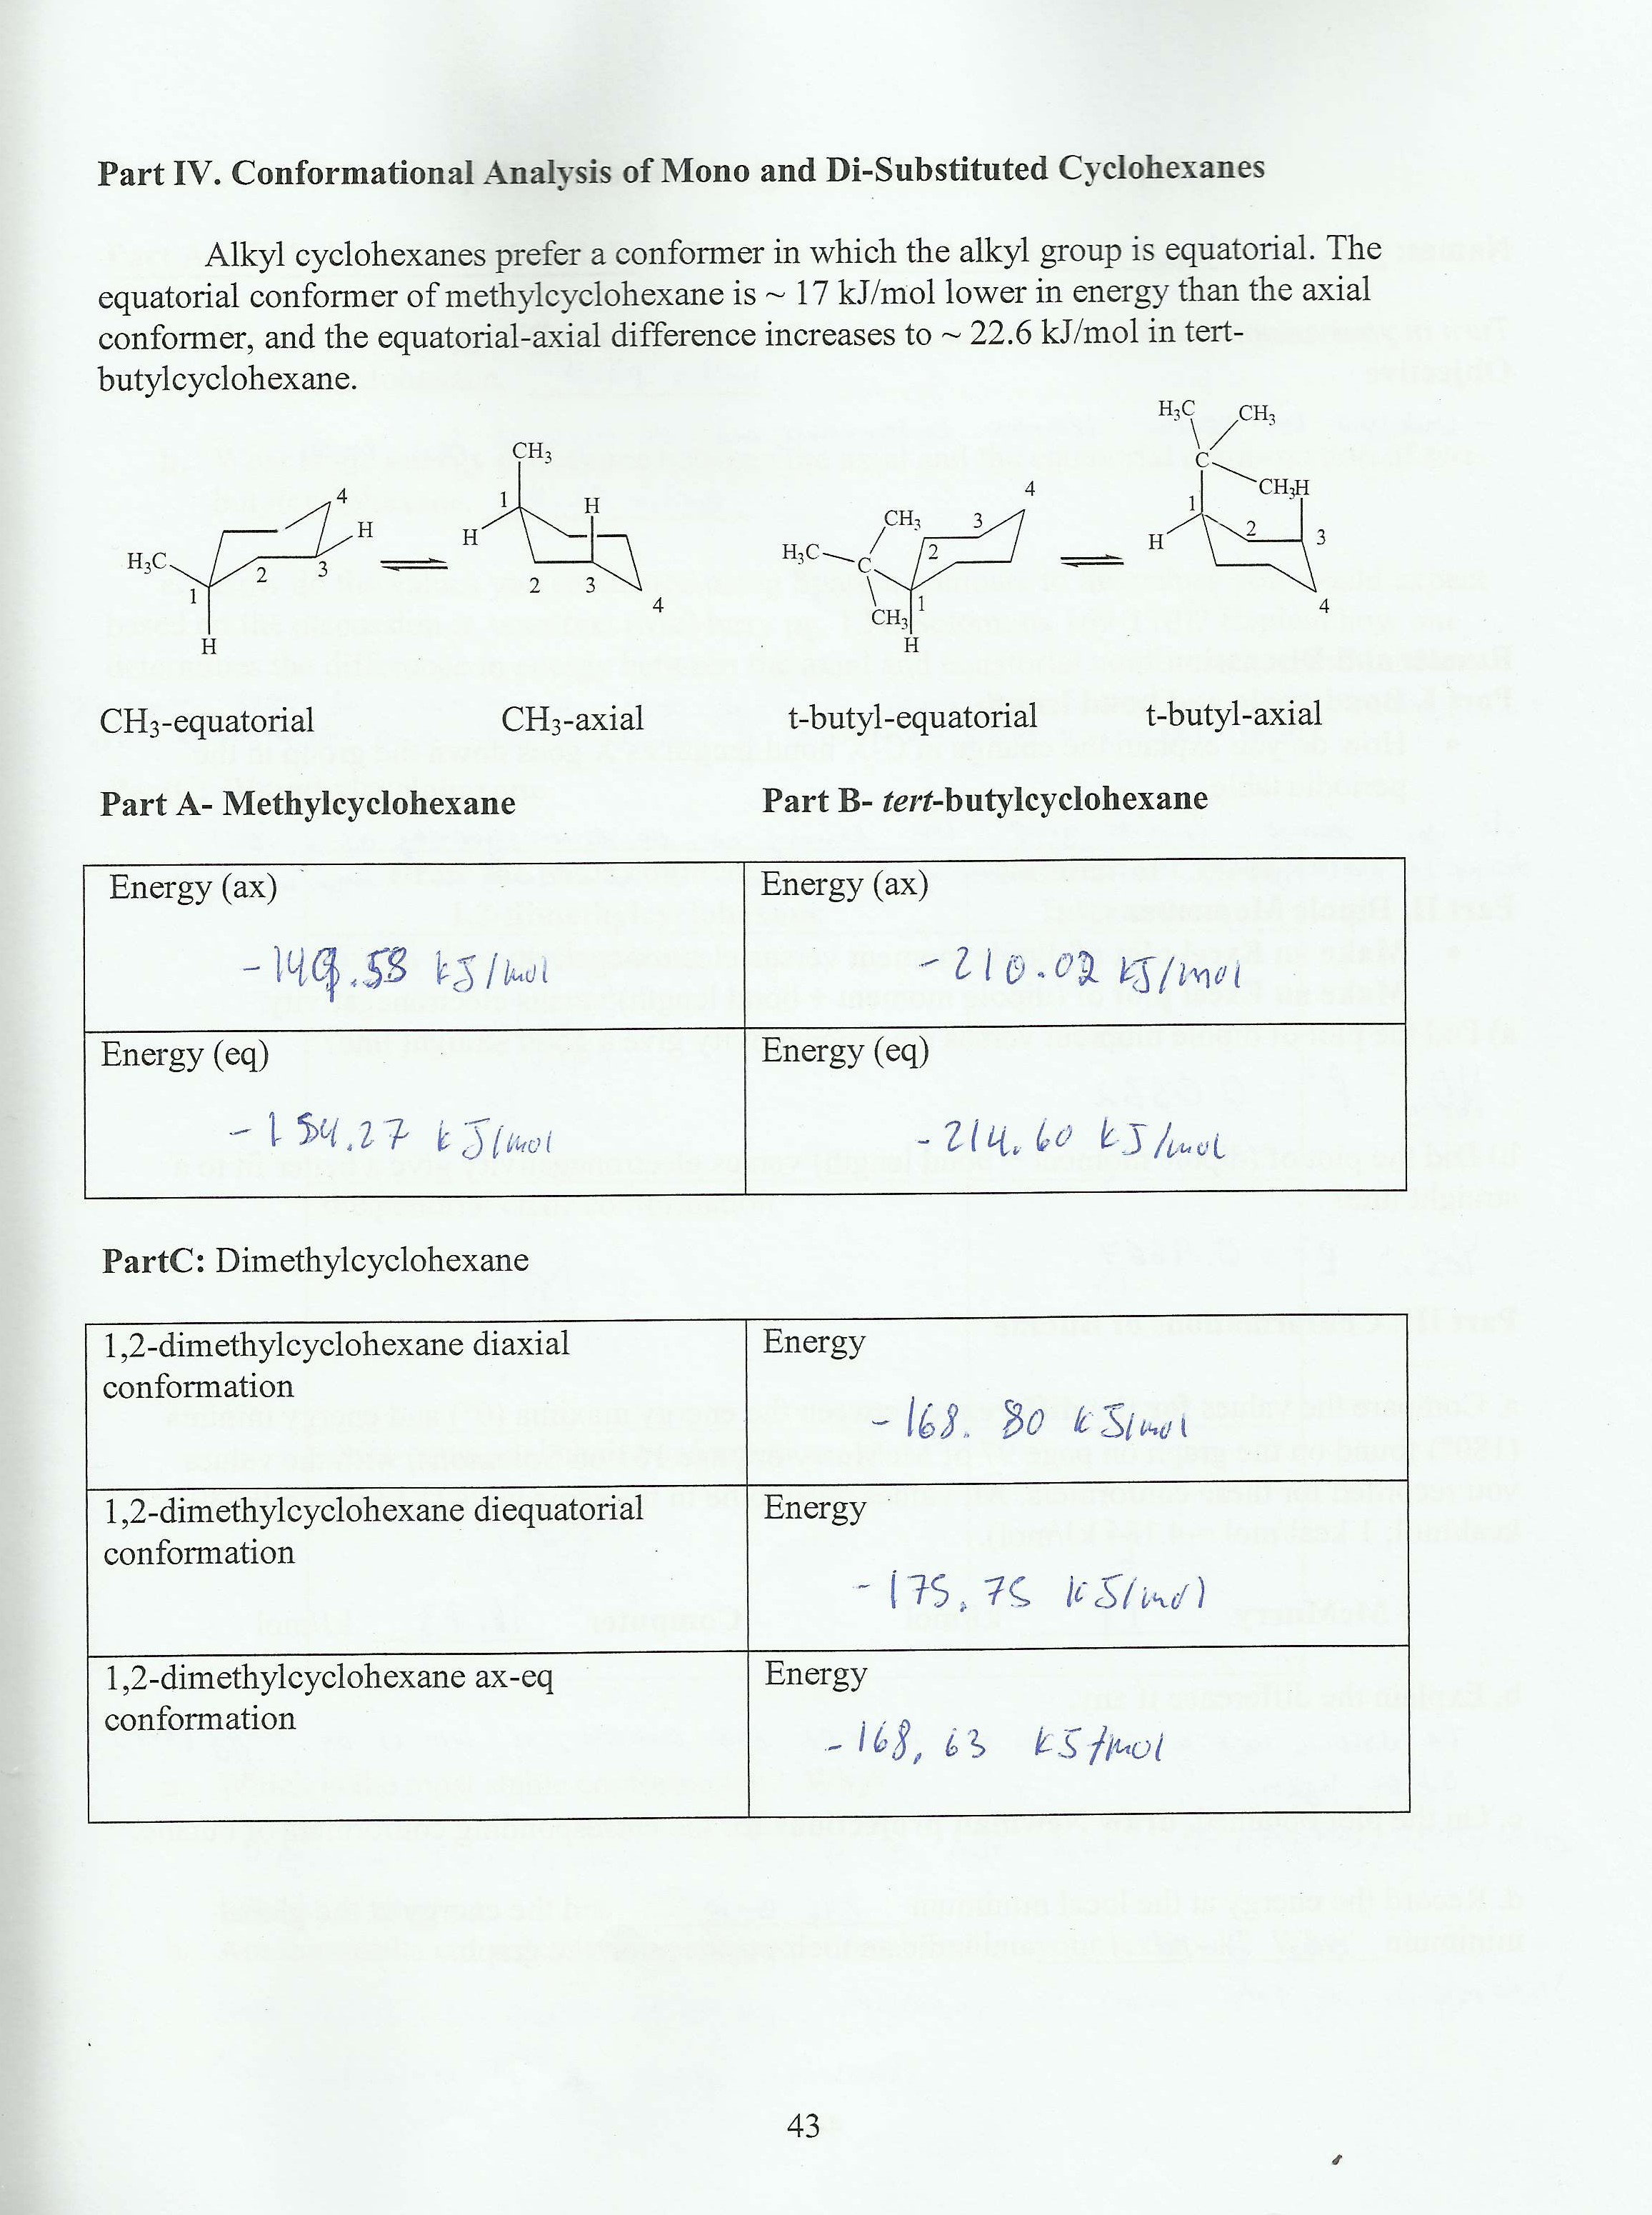 Part IV. Conformational Analysis of Mono and Di-Substituted Cyclohexanes
Alkyl cyclohexanes prefer a conformer in which the alkyl group is equatorial. The
equatorial conformer of methylcyclohexane is ~ 17 kJ/mol lower in energy than the axial
conformer, and the equatorial-axial difference increases to ~ 22.6 kJ/mol in tert-
butylcyclohexane.
H3C 1 H 2 3 4 H
CH3 1 H H 2 3 4
H3C C CH3 CH3 1 H 2 3 4
H3C CH3 C CH3 H 1 H 2 3 4
CH3-equatorial CH3-axial t-butyl-equatorial t-butyl-axial
Part A- Methylcyclohexane Part B- tert-butylcyclohexane
Energy (ax) Energy (ax)
-149.58 kJ/mol -210.02 kJ/mol
Energy (eq) Energy (eq)
-154.27 kJ/mol -214.60 kJ/mol
PartC: Dimethylcyclohexane
1,2-dimethylcyclohexane diaxial Energy
conformation
-168.80 kJ/mol
1,2-dimethylcyclohexane diequatorial Energy
conformation
-175.75 kJ/mol
1,2-dimethylcyclohexane ax-eq Energy
conformation
-168,63 kJ/mol
43